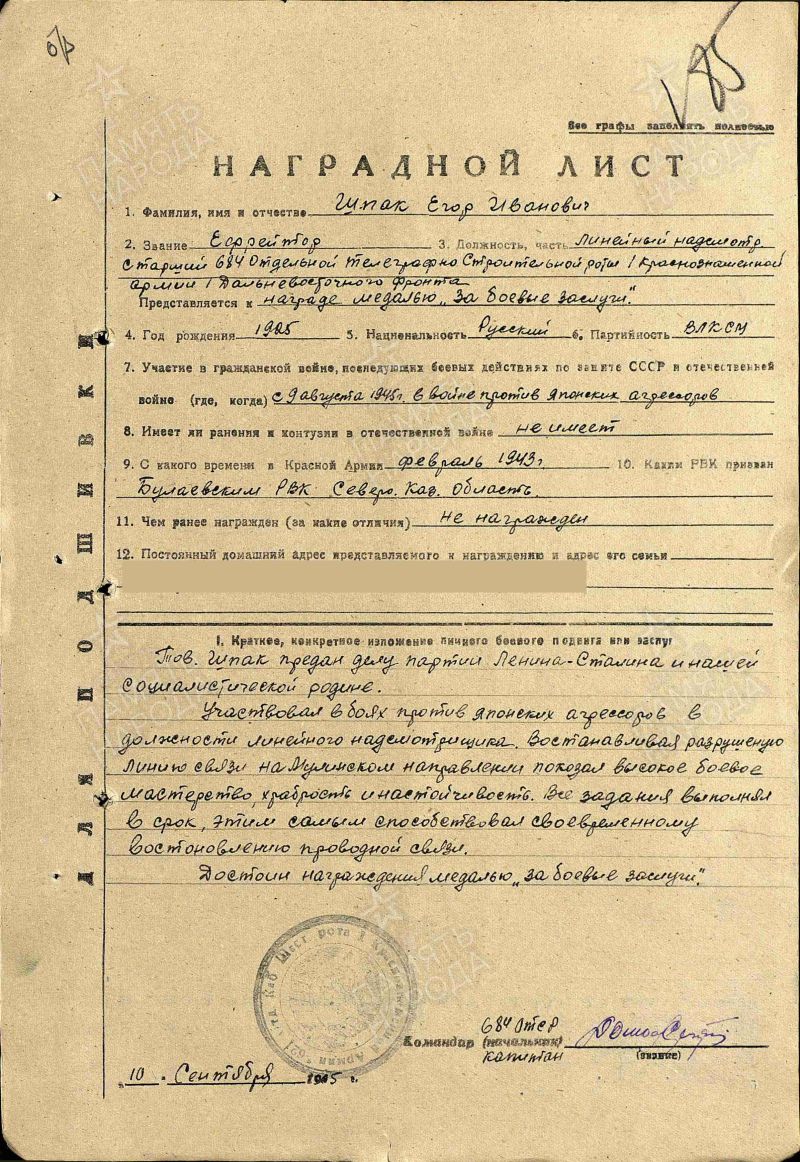 О/р
185
Все графы заполнять полностью
НАГРАДНОЙ ЛИСТ
1. Фамилия, имя и отчество Шпак Егор Иванович
2. Звание Ефрейтор 3. Должность, часть линейный надсмотр.
старший 684 Отдельной телеграфно Строительной роты 1 Краснознаменной
армии 1 Дальневосточного фронта
Представляется к награде медалью „За боевые заслуги".
4. Год рождения 1925 5. Национальность Русский 6. Партийность ВЛКСМ
7. Участие в гражданской войне, последующих боевых действиях по защите СССР и отечественной
войне (где, когда) с 9 августа 1945г. в войне против японских агрессоров
8. Имеет ли ранения и контузии в отечественной войне не имеет
9. С какого времени в Красной Армии февраль 1943г 10. Каким РВК призван
Булаевским РВК Северо. Каз. Область.
11. Чем ранее награжден (за какие отличия) не награжден
12. Постоянный домашний адрес представляемого к награждению и адрес его семьи
I. Краткое, конкретное изложение личного боевого подвига или заслуг
Тов. Шпак предан делу партии Ленина-Сталина и нашей
социалистической родине.
Участвовал в боях против японских агрессоров в
должности линейного надсмотрщика. Востанавливая разрушеную
линию связи на Мулинском направлении показал высокое боевое
мастерство, храбрость и настойчивость. Все задания выполнял
в срок, этим самым способствовал своевременному
востоновлению проводной связи.
Достоин награждения медалью „за боевые заслуги".
684 ОТСР
Командир (начальник)
капитан
(звание)
„10 " Сентября 1945 г.
ДЛЯ ПОДШИВКИ
ПАМЯТЬ НАРОДА